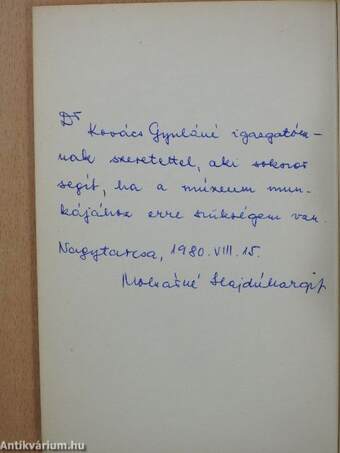 Dr
Kovács Gyuláné igazgatóm-
nak szeretettel, aki sokszor
segít, ha a múzeum mun-
kájához erre szükségem van.
Nagytarcsa, 1980. VIII. 15.
Molnárné Hajdú Margit
Antikvárium.hu